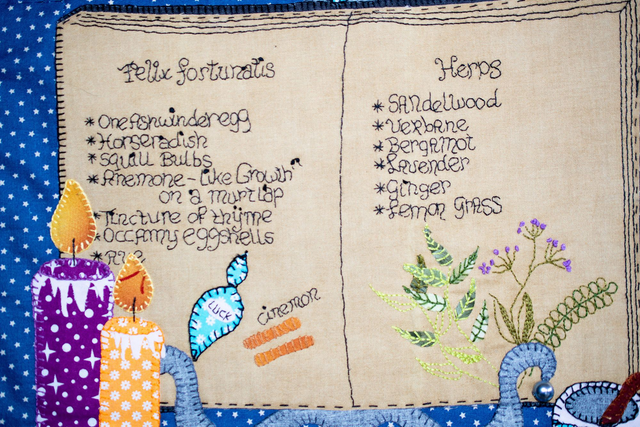 Felix fortunatis
*One Ashwinder egg
*Horseradish
*Squill Bulbs
*Anemone-Like Growth"
on a murtlap
*Tincture of thyme
*Occamy eggshells
*Rue
LUCK
cinemon
Herps
*SANdelwood
*Verbane
*Bergamot
*Lavender
*Ginger
*Lemon grass